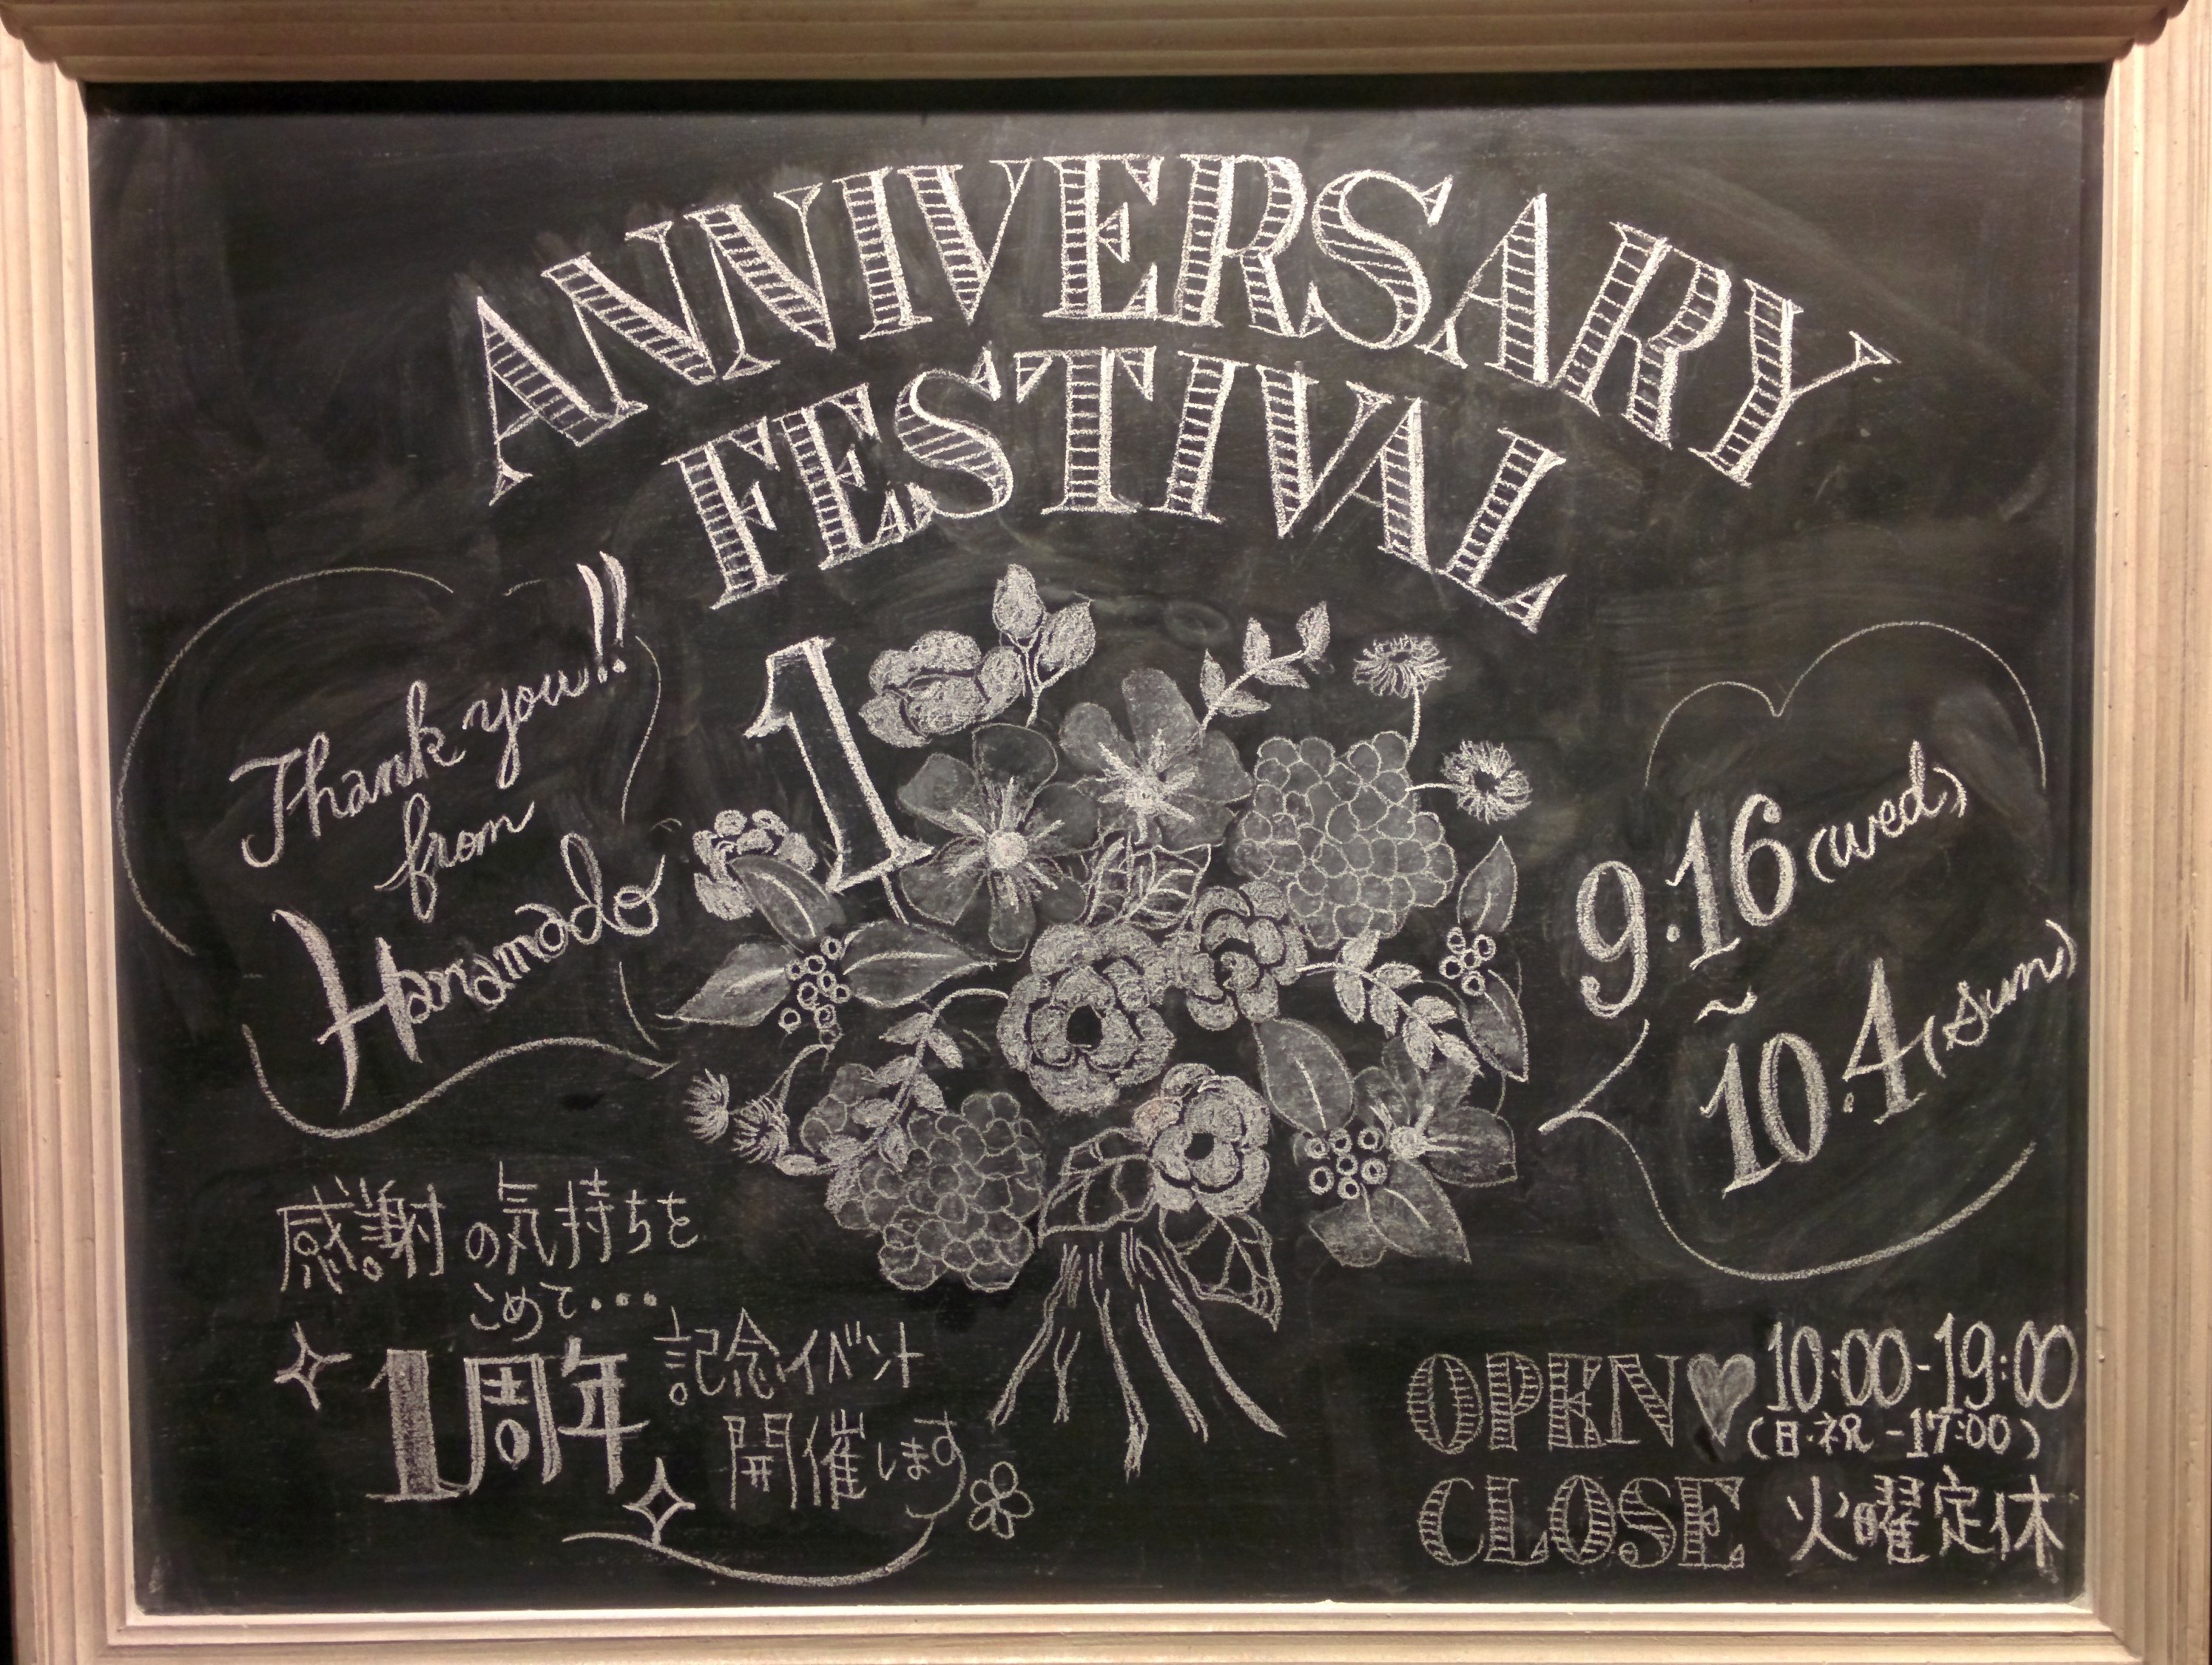 ANNIVERSARY
FESTIVAL
1
Thank you!!
from
Hanamado
9.16(wed)
~
10.4(sun)
感謝の気持ちを
こめて...
1周年 記念イベント
開催します
OPEN♥10:00-19:00
(日・祝 -17:00)
CLOSE 火曜定休